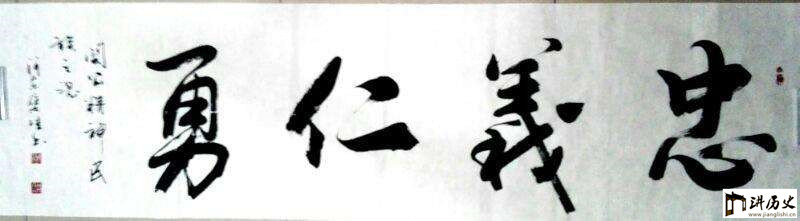 忠義仁勇
关公精神民
族之魂
讲历史
www.jianglishi.cn